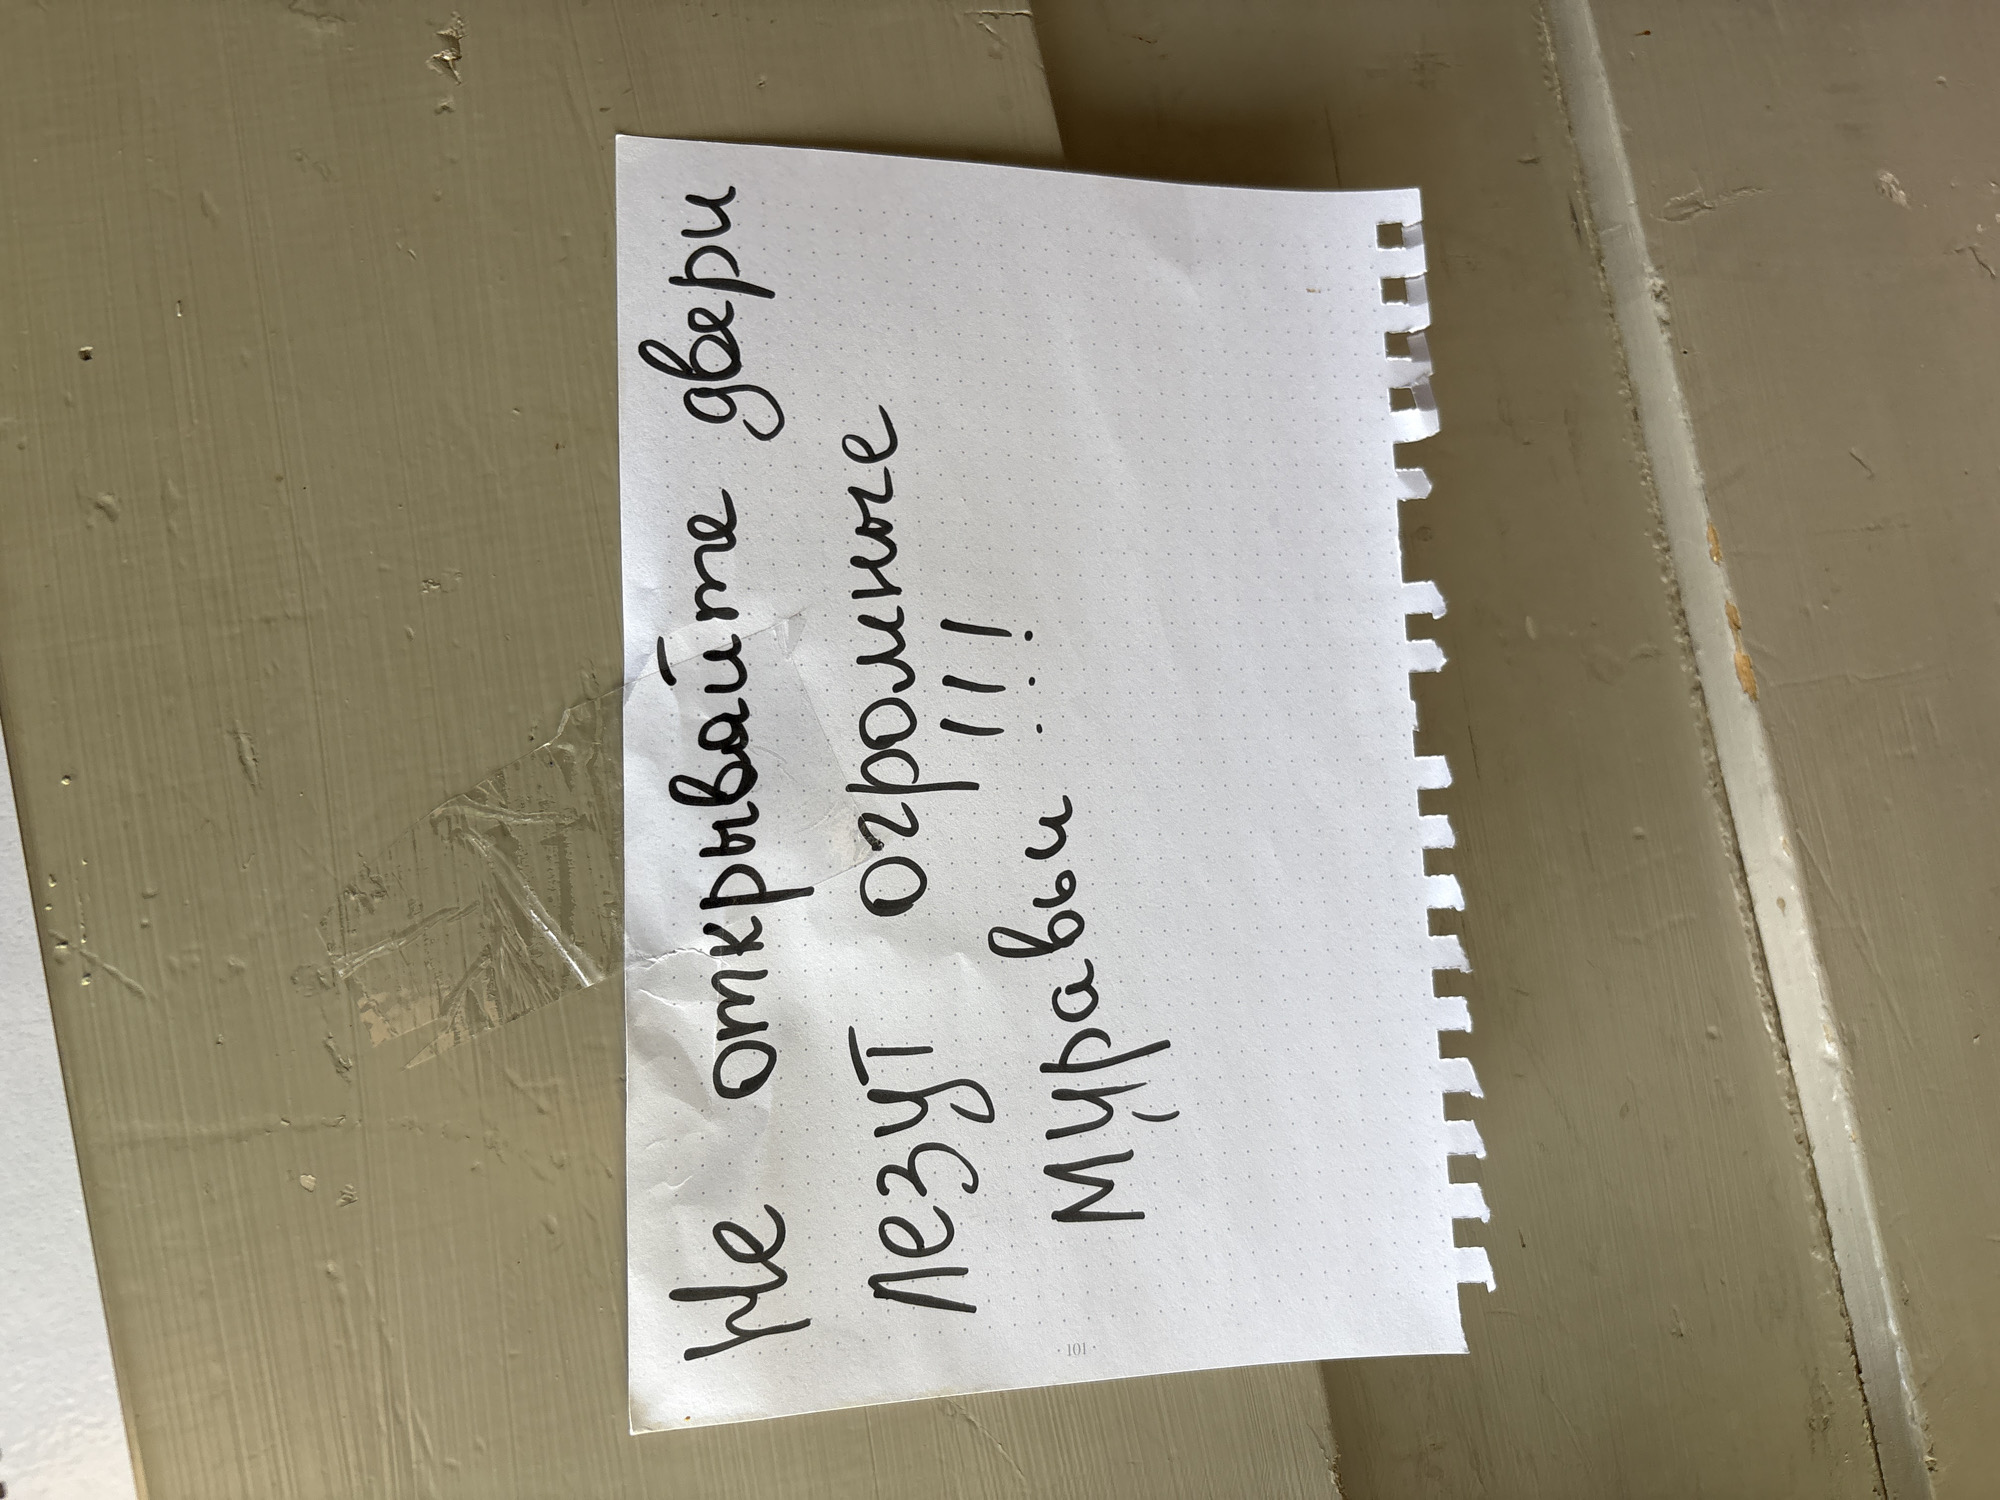 Не открывайте двери
лезут огромные
муравьи !!!
· 101 ·